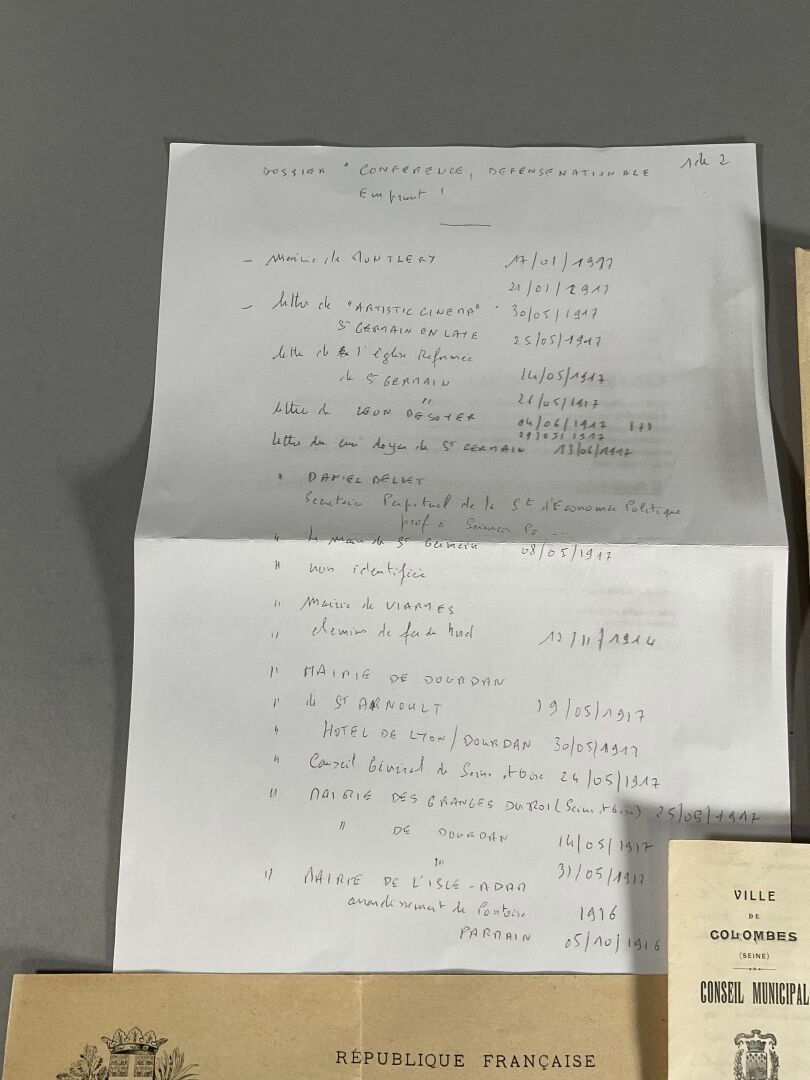 1 de 2
DOSSIER " CONFERENCE, DEFENSE NATIONALE
Emprunt "
- Mairie de MONTLERY 17/01/1917
21/01/1917
- lettre de "ARTISTIC CINEMA" 30/05/1917
ST GERMAIN EN LAYE 25/05/1917
lettre de l'église Reformée
de ST GERMAIN 24/05/1917
" 26/05/1917
lettre de LEON DESOYER 04/06/1917
29/05/1917
lettre du curé doyen de ST GERMAIN 13/06/1917
" DANIEL BELLET
Secretaire Perpetuel de la Sté d'Economie Politique
prof a Sciences Po --
" le maire de St Germain 08/05/1917
" non identifiée
" Mairie de VIARMES
" chemins de fer du Nord 12/11/1914
" MAIRIE DE DOURDAN
" de ST ARNOULT 19/05/1917
" HOTEL DE LYON/DOURDAN 30/05/1917
" Conseil Général de Seine et Oise 24/05/1917
" MAIRIE DES GRANGES DU ROI (Seine et Oise) 25/05/1917
" DE DOURDAN 14/05/1917
" 31/05/1917
" MAIRIE DE L'ISLE-ADAM
arrondissement de Pontoise 1916
PARMAIN 05/10/1916
VILLE
DE
COLOMBES
(SEINE)
CONSEIL MUNICIPAL
RÉPUBLIQUE FRANÇAISE